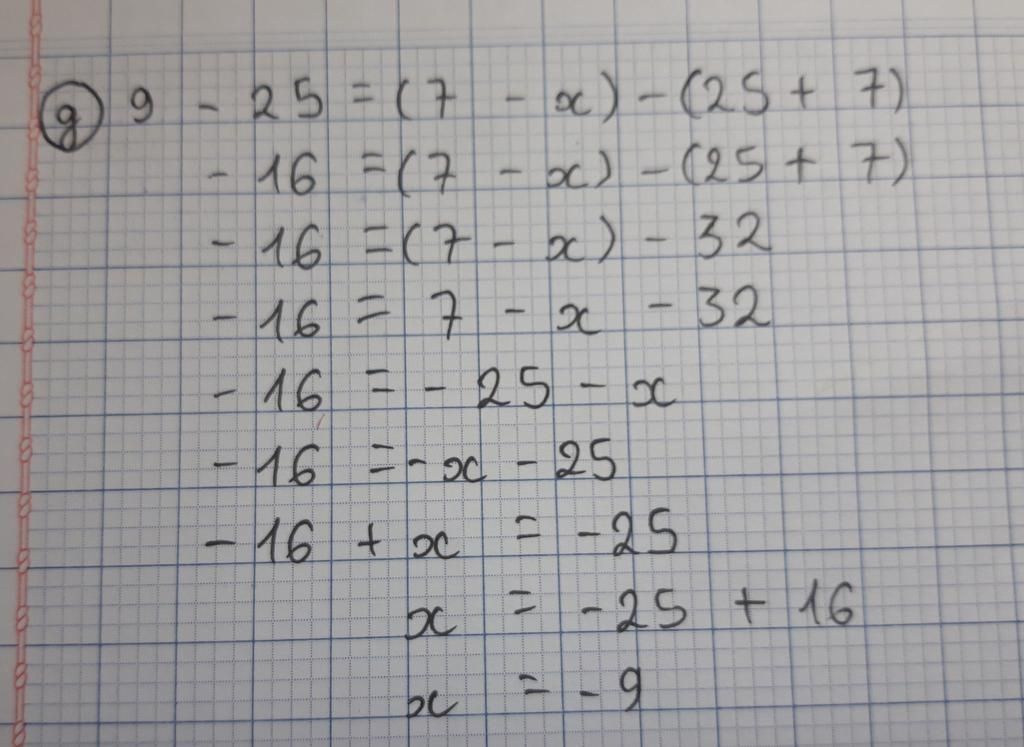 g 9 - 25 = (7 - x) - (25 + 7)
- 16 = (7 - x) - (25 + 7)
- 16 = (7 - x) - 32
- 16 = 7 - x - 32
- 16 = - 25 - x
- 16 = - x - 25
- 16 + x = - 25
x = - 25 + 16
x = - 9